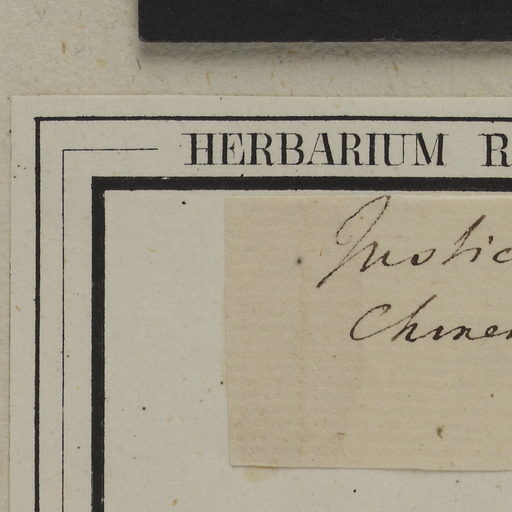 HERBARIUM R
Justic
Chinen